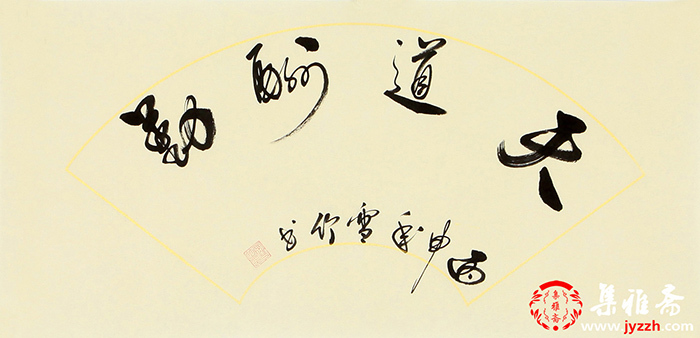 天道酬勤
丙申秀雪竹书
集雅斋
集雅斋
www.jyzzh.com